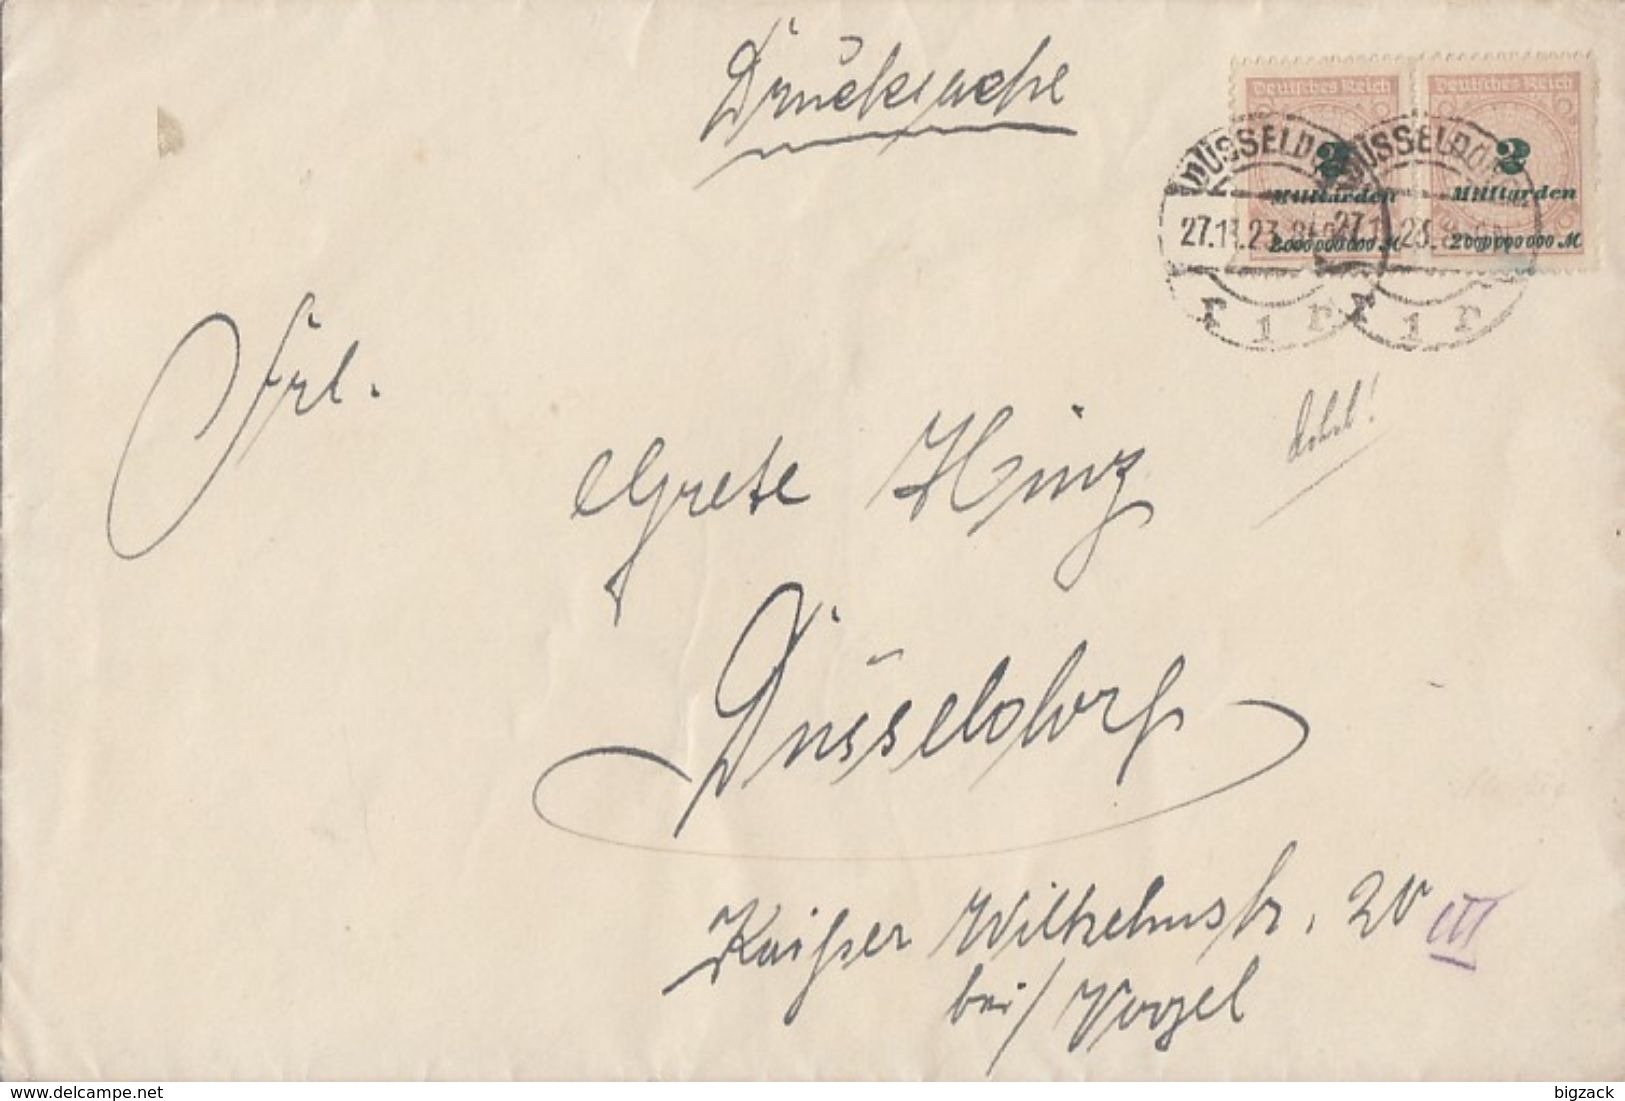 Drucksache
Deutsches Reich
Deutsches Reich
2
Milliarden
2000000000 M
2
Milliarden
2000000000 M
DÜSSELDORF
27.11.23. 8
1
DÜSSELDORF
27.11.23. 8
1
Frl.
Grete Hinz
Düsseldorf
Kaiser Wilhelmstr. 20 III
bei/ Vogel
www.delcampe.net
bigzack